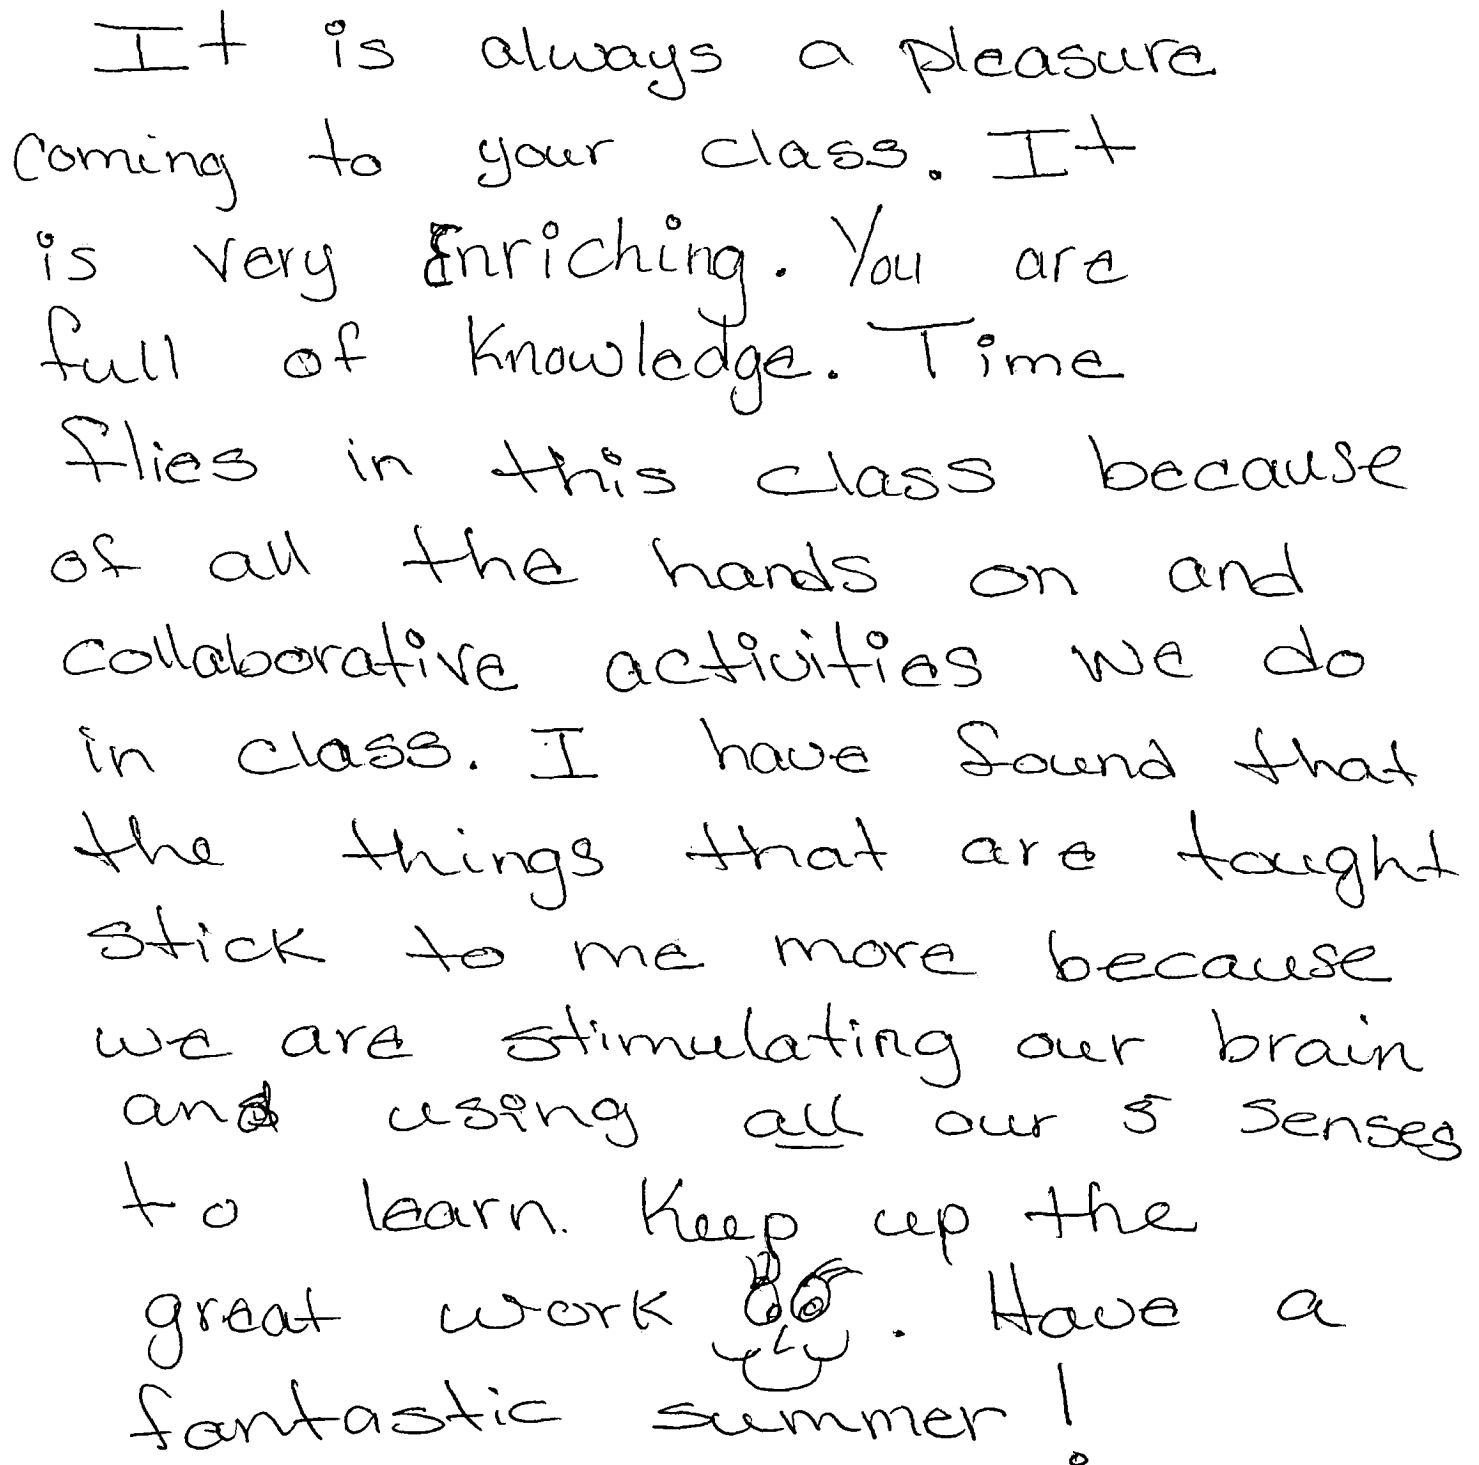 It is always a pleasure
coming to your class. It
is very Enriching. You are
full of Knowledge. Time
flies in this class because
of all the hands on and
collaborative activities we do
in class. I have found that
the things that are tought
stick to me more because
we are stimulating our brain
and using all our 5 senses
to learn. Keep up the
great work . Have a
fantastic summer!